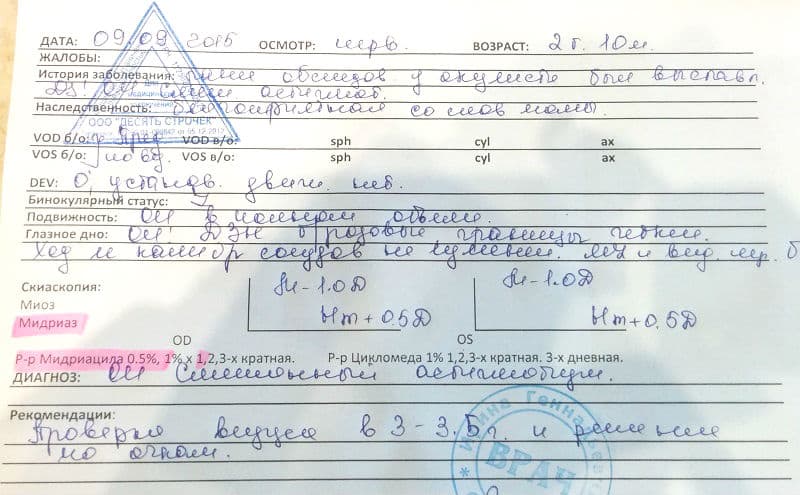 ДАТА: 09.09.2015 ОСМОТР: перв. ВОЗРАСТ: 2 г. 10 м.
ЖАЛОБЫ:
История заболевания: Ранее обслед. у окулиста был выставл.
Ds: OU астигмат.
Наследственность: со слов мамы.
ООО "ДЕСЯТЬ СТРОЧЕК"
VOD б/о: Пред VOD в/о: sph cyl ax
VOS б/о: VOS в/о: sph cyl ax
DEV: 0, установ. движ. нет.
Бинокулярный статус:
Подвижность: OU в полном объеме.
Глазное дно: OU: ДЗН б/розовые границы четкие.
Ход и калибр сосудов не изменены.
Скиаскопия:
Миоз
Мидриаз
M - 1.0Д Hm + 0.5Д
M - 1.0Д Hm + 0.5Д
OD OS
Р-р Мидриацила 0.5%, 1% х 1,2,3-х кратная. Р-р Цикломеда 1% 1,2,3-х кратная. 3-х дневная.
ДИАГНОЗ: OU Смешанный астигматизм.
Рекомендации:
Проверка в 3 - 3.5 г. и решение
по очкам.
ВРАЧ